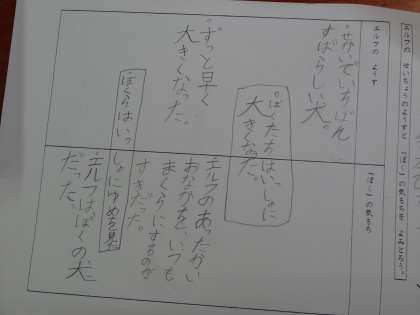 エルフの せいちょうのようすと、「ぼく」の気もちを よみとろう。
エルフの ようす
「ぼく」の気もち
・せかいでいちばん
すばらしい犬。
・ぼくたちはいっしょに
大きくなった。
・ずっと早く
大きくなった。
エルフのあったかい
おなかを、いつも
まくらにするのが
すきだった。
・ぼくらはいっ
しょにゆめを見た
・エルフは、ぼくの犬
だった。